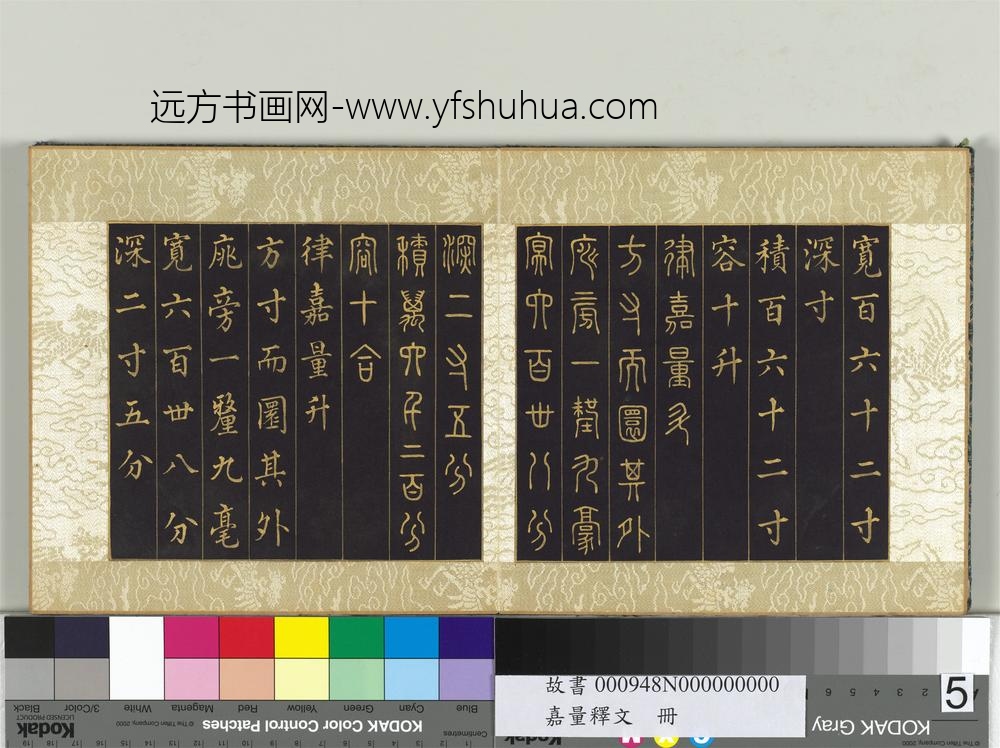 远方书画网-www.yfshuhua.com
寬百六十二寸
深寸
積百六十二寸
容十升
律嘉量升
方寸而圜其外
庣旁一釐九豪
冥六百卌八分
深二寸五分
積萬六千二百分
容十合
律嘉量升
方寸而圜其外
庣旁一釐九毫
寬六百卌八分
深二寸五分
故書 000948N000000000
嘉量釋文 冊
5
Blue Cyan Green Yellow Red Magenta White 3/Color Black
KODAK Color Control Patches
© The Tiffen Company, 2000
Kodak
LICENSED PRODUCT
KODAK Gray